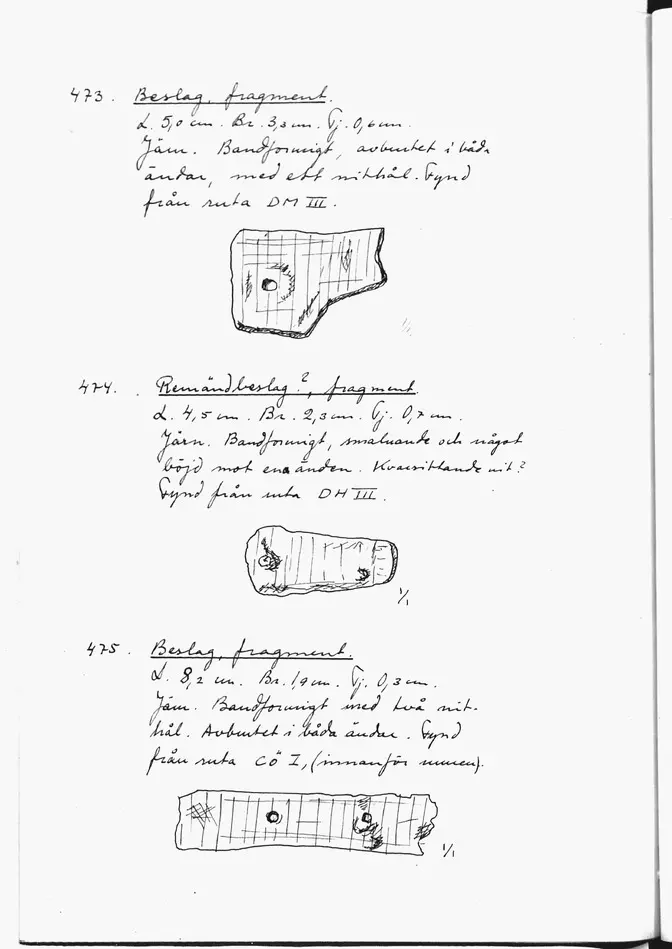 473. Beslag, fragment.
L. 5,0 cm. Br. 3,3 cm. Tj. 0,6 cm.
Järn. Bandformigt, avbrutet i båda
ändar, med ett nithål. Fynd
från ruta DM III.
1/1
474. Remändbeslag?, fragment.
L. 4,5 cm. Br. 2,3 cm. Tj. 0,7 cm.
Järn. Bandformigt, smalnande och något
böjd mot ena änden. Kvarsittande nit?
Fynd från ruta DH III.
1/1
475. Beslag, fragment.
L. 8,2 cm. Br. 1,9 cm. Tj. 0,3 cm.
Järn. Bandformigt med två nit-
hål. Avbrutet i båda ändar. Fynd
från ruta CÖ I, (innanför muren).
1/1